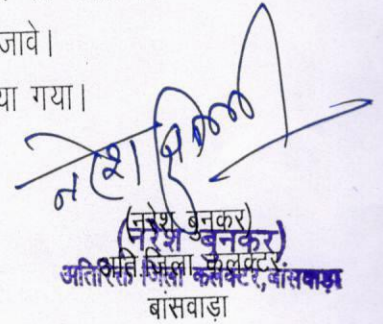 जावे।
या गया।
नरेश
(नरेश बुनकर)
(नरेश बुनकर)
अति.जिला कलक्टर.
अतिरिक्त जिला कलक्टर, बांसवाड़ा
बांसवाड़ा